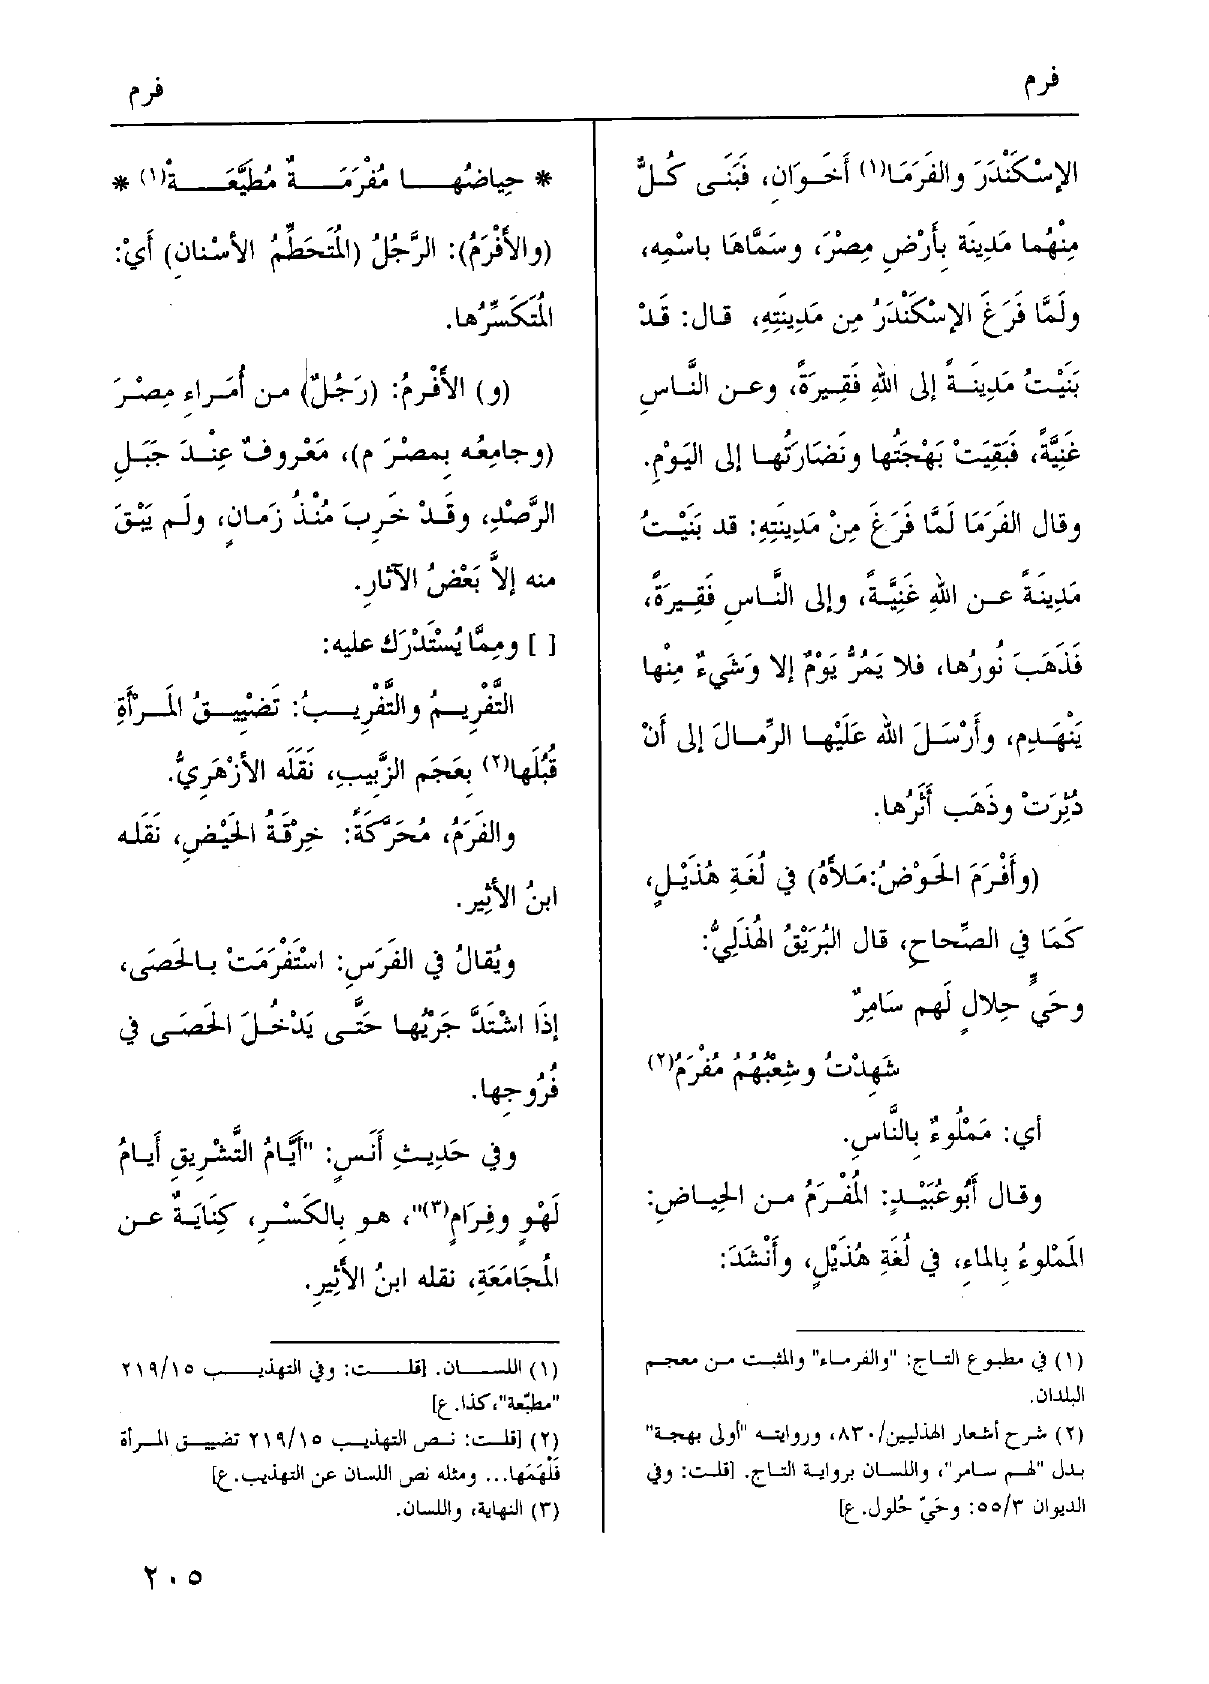 فرم
فرم
الإسْكَنْدَرَ والفَرَمَا(١) أَخَوَانِ، فَبَنَى كُلٌّ
مِنْهُما مَدِينَة بِأَرْضِ مِصْرَ، وسَمَّاهَا باسْمِه،
ولَمَّا فَرَغَ الإسْكَنْدَرُ مِن مَدِينَتِهِ، قال: قَدْ
بَنَيْتُ مَدِينَةً إلى اللهِ فَقِيرَةً، وعن النَّاسِ
غَنِيَّةً، فَبَقِيَتْ بَهْجَتُها ونَضَارَتُها إلى اليَوْمِ.
وقال الفَرَمَا لَمَّا فَرَغَ مِنْ مَدِينَتِهِ: قد بَنَيْتُ
مَدِينَةً عن اللهِ غَنِيَّةً، وإلى النَّاسِ فَقِيرَةً،
فَذَهَبَ نُورُها، فلا يَمُرُّ يَوْمٌ إلا وشَيءٌ مِنْها
يَنْهَدِم، وأَرْسَلَ الله عَلَيْها الرِّمالَ إلى أنْ
دُثِرَتْ وذَهَب أَثَرُها.
(وأَفْرَمَ الحَوْضُ:مَلأَهُ) في لُغَةِ هُذَيْلٍ،
كَمَا في الصِّحاحِ، قال البُرَيْقُ الهُذَلِيُّ:
وحَيٍّ حِلالٍ لَهم سَامِرٌ
شَهِدْتُ وشِعْبُهُمُ مُفْرَمُ(٢)
أي: مَمْلُوءٌ بالنَّاسِ.
وقال أَبُوعُبَيْدٍ: المُفْرَمُ من الحِياضِ:
المَمْلوءُ بِالماءِ، في لُغَةِ هُذَيْلٍ، وأَنْشَدَ:
(١) في مطبوع التاج: "والفرماء" والمثبت من معجم
البلدان.
(٢) شرح أشعار الهذليين/٨٣٠، وروايته "أولى بهجة"
بدل "لهم سامر"، واللسان برواية التاج. [قلت: وفي
الديوان ٥٥/٣: وحَيّ حُلول. ع]
* حِياضُها مُفْرَمَةٌ مُطَبَّعَةْ(١) *
(والأَفْرَمُ): الرَّجُلُ (المُتَحَطِّمُ الأسْنانِ) أَيْ:
المُتَكَسِّرُها.
(و) الأَفْرمُ: (رَجُلٌ) من أُمَراءِ مِصْرَ
(وجامِعُه بِمصْرَ م)، مَعْروفٌ عِنْدَ جَبَلِ
الرَّصْدِ، وقَدْ خَرِبَ مُنْذُ زَمانٍ، ولَم يَبْقَ
منه إلاَّ بَعْضُ الآثارِ.
[ ] ومِمَّا يُسْتَدْرَك عليه:
التَّفْرِيمُ والتَّفْرِيبُ: تَضْيِيقُ المَرْأةِ
قُبُلَها(٢) بِعَجَم الزَّبِيبِ، نَقَلَه الأَزْهَرِيُّ.
والفَرَمُ، مُحَرَّكَةً: خِرْقَةُ الحَيْضِ، نَقَله
ابنُ الأَثِيرِ.
ويُقالُ في الفَرَسِ: اسْتَفْرَمَتْ بالحَصَى،
إذَا اشْتَدَّ جَرْيُها حَتَّى يَدْخُلَ الحَصَى في
فُرُوجِها.
وفي حَدِيثِ أَنَسٍ: "أَيَّامُ التَّشْرِيقِ أَيامُ
لَهْوٍ وفِرَامٍ(٣)"، هو بِالكَسْرِ، كِنَايَةٌ عن
المُجَامَعَةِ، نقله ابنُ الأَثِيرِ.
(١) اللسان. [قلت: وفي التهذيب ٢١٩/١٥
"مطبّعة"،كذا. ع]
(٢) [قلت: نص التهذيب ٢١٩/١٥ تضييق المرأة
فَلْهَمَها... ومثله نص اللسان عن التهذيب. ع]
(٣) النهاية، واللسان.
٢٠٥